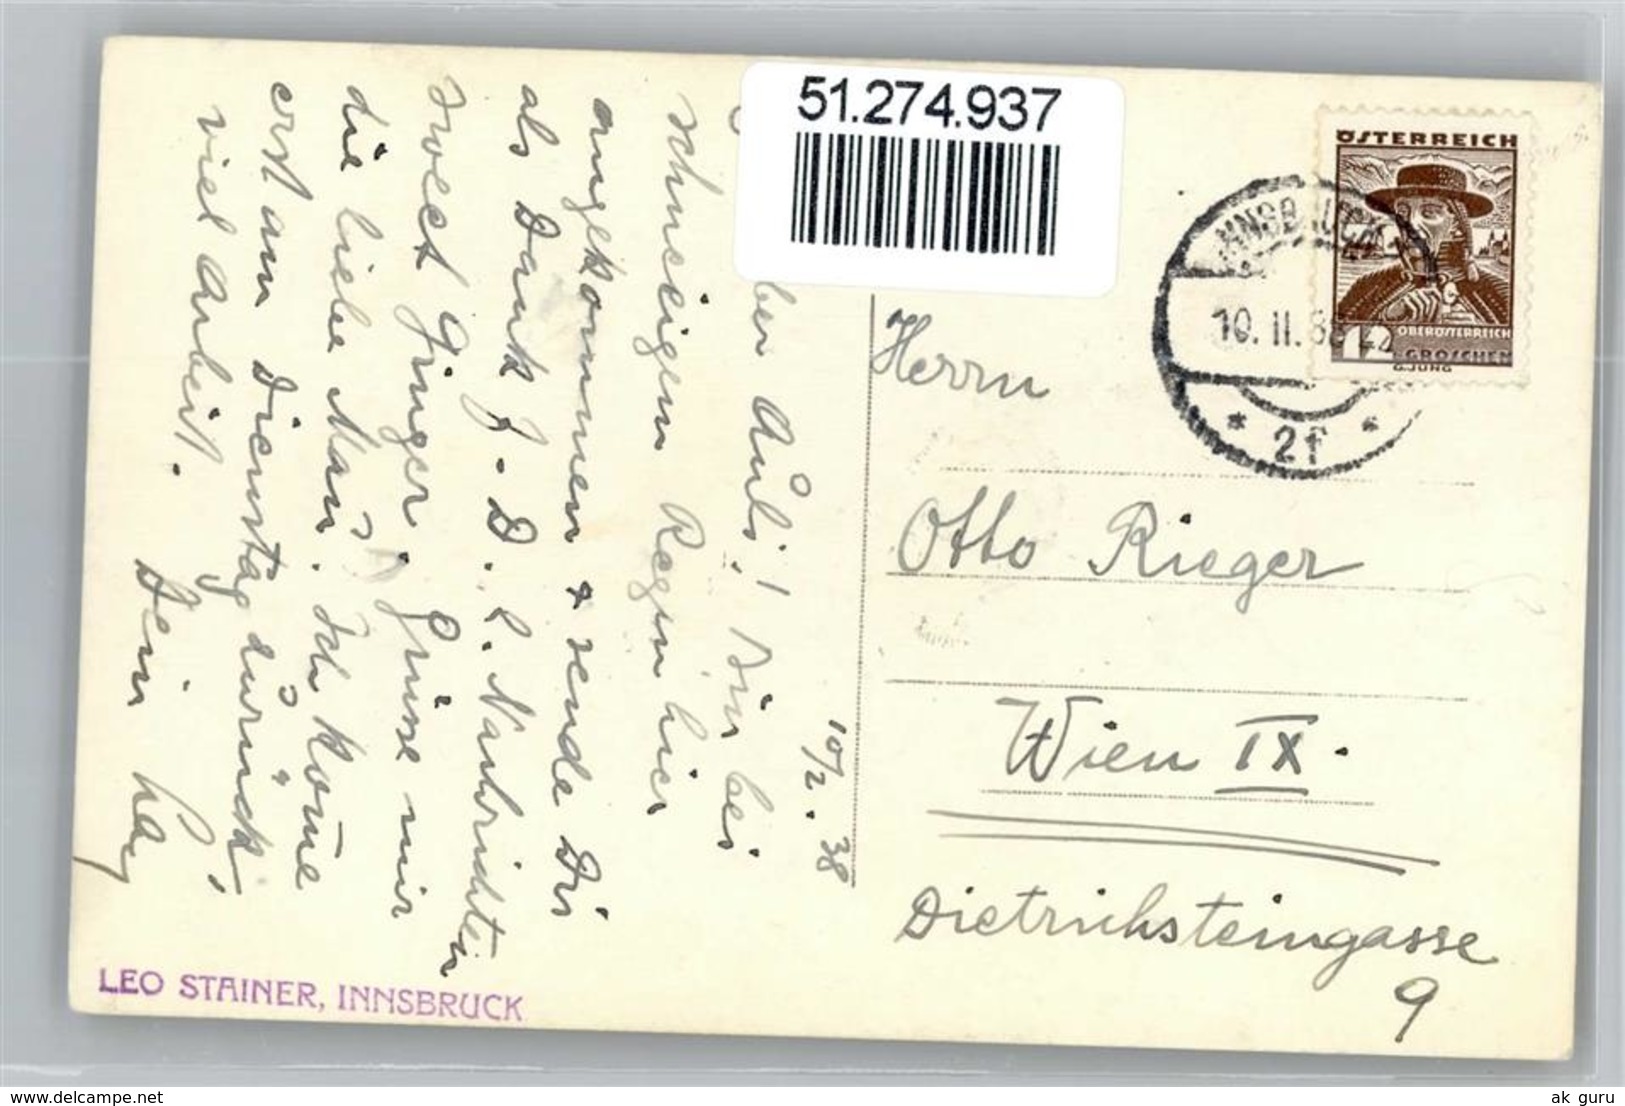 51.274.937
ÖSTERREICH
OBERÖSTERREICH
12 GROSCHEN
G.JUNG
INNSBRUCK
10. II. 38
* 2f *
10/2. 38
bin bei
schneeigem Regen hier
angekommen & sende Dir
als Dank
die liebe Mau. Ich kom̄e
erst am Dienstag zurück,
viel Arbeit.
Dein
Herrn
Otto Rieger
Wien IX.
Dietrichsteingasse
9
LEO STAINER, INNSBRUCK
delcampe.net
ak_guru